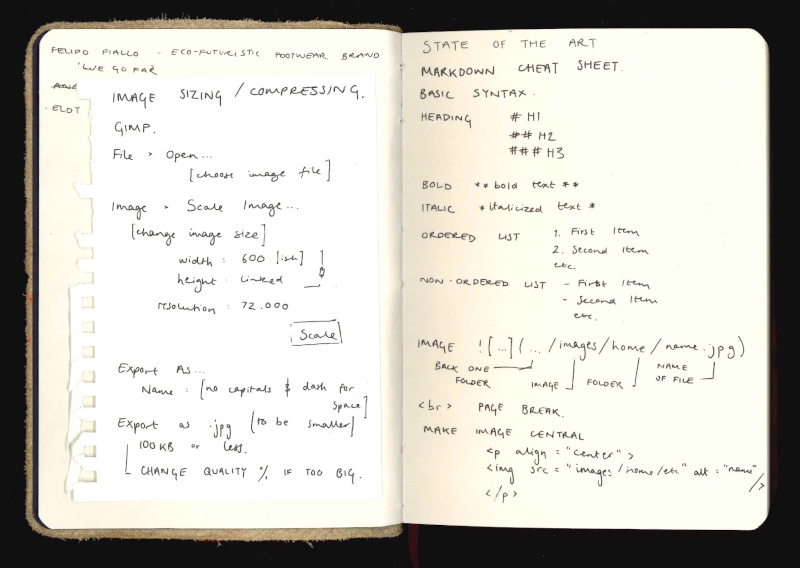 FELIPO FIALLO - ECO-FUTURISTIC FOOTWEAR BRAND
'WE GO FAR
ELDY
IMAGE SIZING / COMPRESSING.
GIMP.
File > Open...
[choose image file]
Image > Scale Image...
[change image size]
width : 600 [ish]
height : linked
resolution : 72.000
Scale
Export As...
Name : [no capitals & dash for
space]
Export as .jpg [to be smaller]
100 KB or less.
CHANGE QUALITY % IF TOO BIG.
STATE OF THE ART
MARKDOWN CHEAT SHEET.
BASIC SYNTAX.
HEADING # H1
## H2
### H3
BOLD **bold text**
ITALIC *italicized text*
ORDERED LIST 1. First Item
2. Second Item
etc.
NON-ORDERED LIST - First Item
- Second Item
etc.
IMAGE ![...](.../images/home/name.jpg)
BACK ONE FOLDER IMAGE FOLDER NAME OF FILE
<br> PAGE BREAK.
MAKE IMAGE CENTRAL
<p align = "center">
<img src = "images/home/etc" alt = "name"
/>
</p>